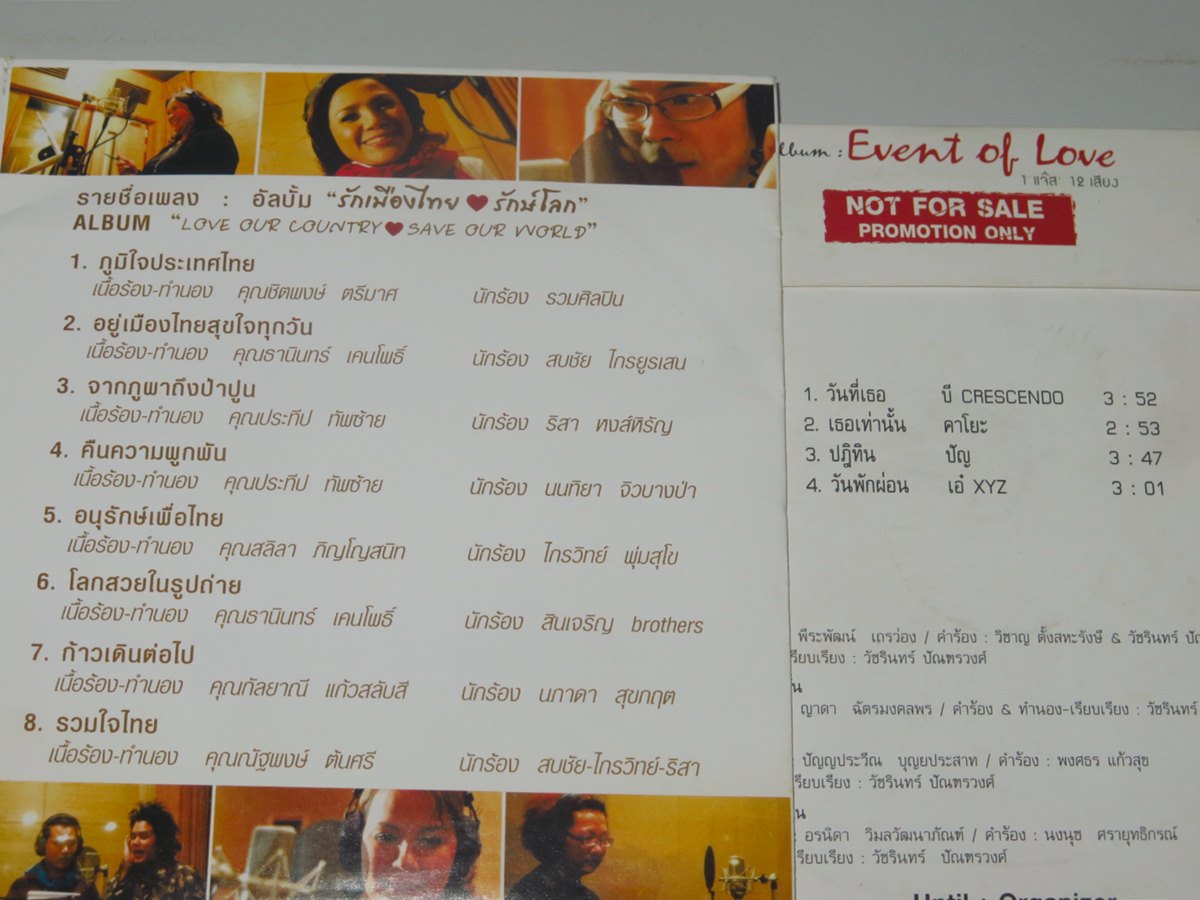 รายชื่อเพลง : อัลบั้ม "รักเมืองไทย ❤ รักษ์โลก"
ALBUM "LOVE OUR COUNTRY ❤ SAVE OUR WORLD"
1. ภูมิใจประเทศไทย
เนื้อร้อง-ทำนอง คุณชิตพงษ์ ตรีมาศ นักร้อง รวมศิลปิน
2. อยู่เมืองไทยสุขใจทุกวัน
เนื้อร้อง-ทำนอง คุณธานินทร์ เคนโพธิ์ นักร้อง สบชัย ไกรยูรเสน
3. จากภูผาถึงป่าปูน
เนื้อร้อง-ทำนอง คุณประทีป ทัพซ้าย นักร้อง ริสา หงส์หิรัญ
4. คืนความผูกพัน
เนื้อร้อง-ทำนอง คุณประทีป ทัพซ้าย นักร้อง นนทิยา จิวบางป่า
5. อนุรักษ์เพื่อไทย
เนื้อร้อง-ทำนอง คุณสลิลา ภิญโญสนิท นักร้อง ไกรวิทย์ พุ่มสุโข
6. โลกสวยในรูปถ่าย
เนื้อร้อง-ทำนอง คุณธานินทร์ เคนโพธิ์ นักร้อง สินเจริญ brothers
7. ก้าวเดินต่อไป
เนื้อร้อง-ทำนอง คุณกัลยาณี แก้วสลับสี นักร้อง นภาดา สุขกฤต
8. รวมใจไทย
เนื้อร้อง-ทำนอง คุณณัฐพงษ์ ต้นศรี นักร้อง สบชัย-ไกรวิทย์-ริสา
lbum : Event of Love
1 แจ๊ส 12 เสียง
NOT FOR SALE
PROMOTION ONLY
1. วันที่เธอ บี CRESCENDO 3 : 52
2. เธอเท่านั้น คาโยะ 2 : 53
3. ปฎิทิน ปัญ 3 : 47
4. วันพักผ่อน เอ๋ XYZ 3 : 01
พีระพัฒน์ เถรว่อง / คำร้อง : วิชาญ ตั้งสหะรังษี & วัชรินทร์ ปัณ
รียบเรียง : วัชรินทร์ ปัณฑรวงศ์
น
ญาดา ฉัตรมงคลพร / คำร้อง & ทำนอง-เรียบเรียง : วัชรินทร์
: ปัญญประวีณ บุญยประสาท / คำร้อง : พงศธร แก้วสุข
รียบเรียง : วัชรินทร์ ปัณฑรวงศ์
น
: อรนิดา วิมลวัฒนาภัณฑ์ / คำร้อง : นงนุช ศรายุทธิกรณ์
รียบเรียง : วัชรินทร์ ปัณฑรวงศ์
Until : Organizer